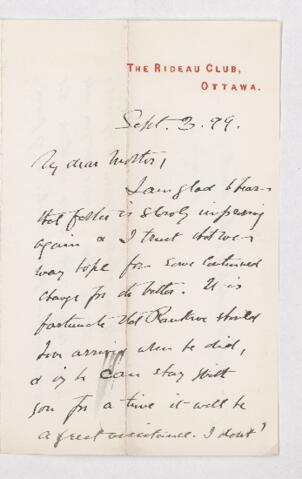 THE RIDEAU CLUB,
OTTAWA.
Sept. 3. 99.
My dear Mother,
I am glad to hear
that father is slowly improving
again & I trust that we
may hope for some continued
change for the better. It is
fortunate that should
have arrived when he did,
& if he can stay with
you for a time it will be
a great assistance. I don't